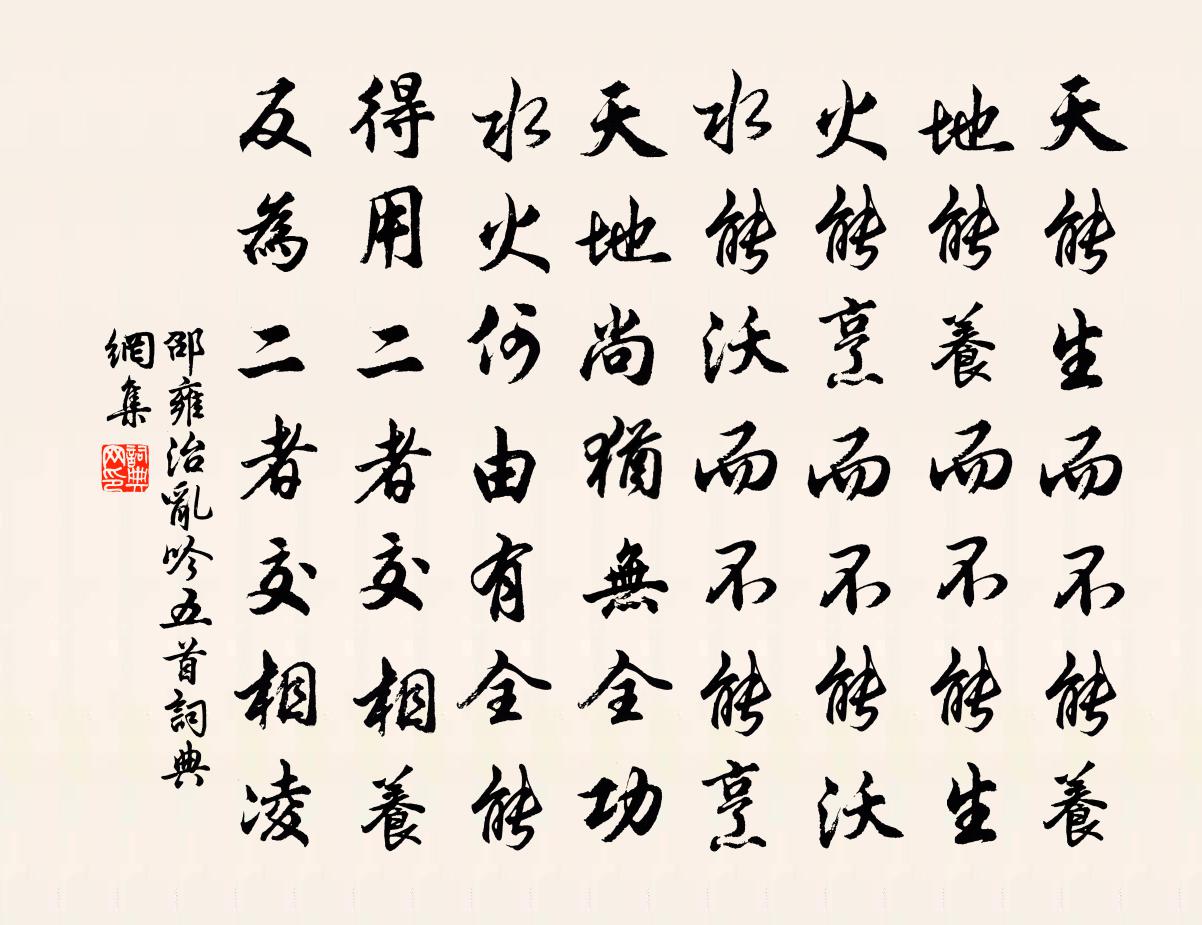 天能生而不能養
地能養而不能生
火能烹而不能沃
水能沃而不能烹
天地尚猶無全功
水火何由有全能
得用二者交相養
反為二者交相凌
邵雍治亂吟五首詞典
網集
詞典
网印